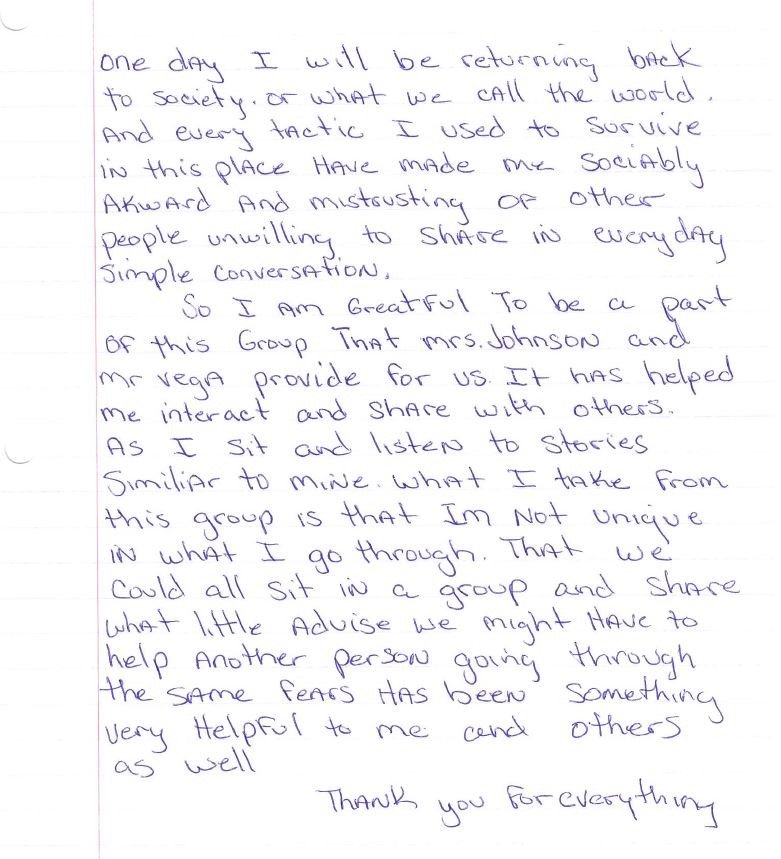 one day I will be returning back
to society. or what we call the world.
And every tactic I used to survive
in this place Have made me sociably
Akward And mistrusting of other
people unwilling to share in everyday
simple conversation.
So I am Greatful To be a part
of this Group That mrs. Johnson and
mr vega provide for us. It has helped
me interact and share with others.
As I sit and listen to stories
Similiar to mine. What I take from
this group is that Im Not unique
in what I go through. That we
could all sit in a group and share
what little Advise we might Have to
help Another person going through
the same fears Has been something
very Helpful to me and others
as well
Thank you for everything